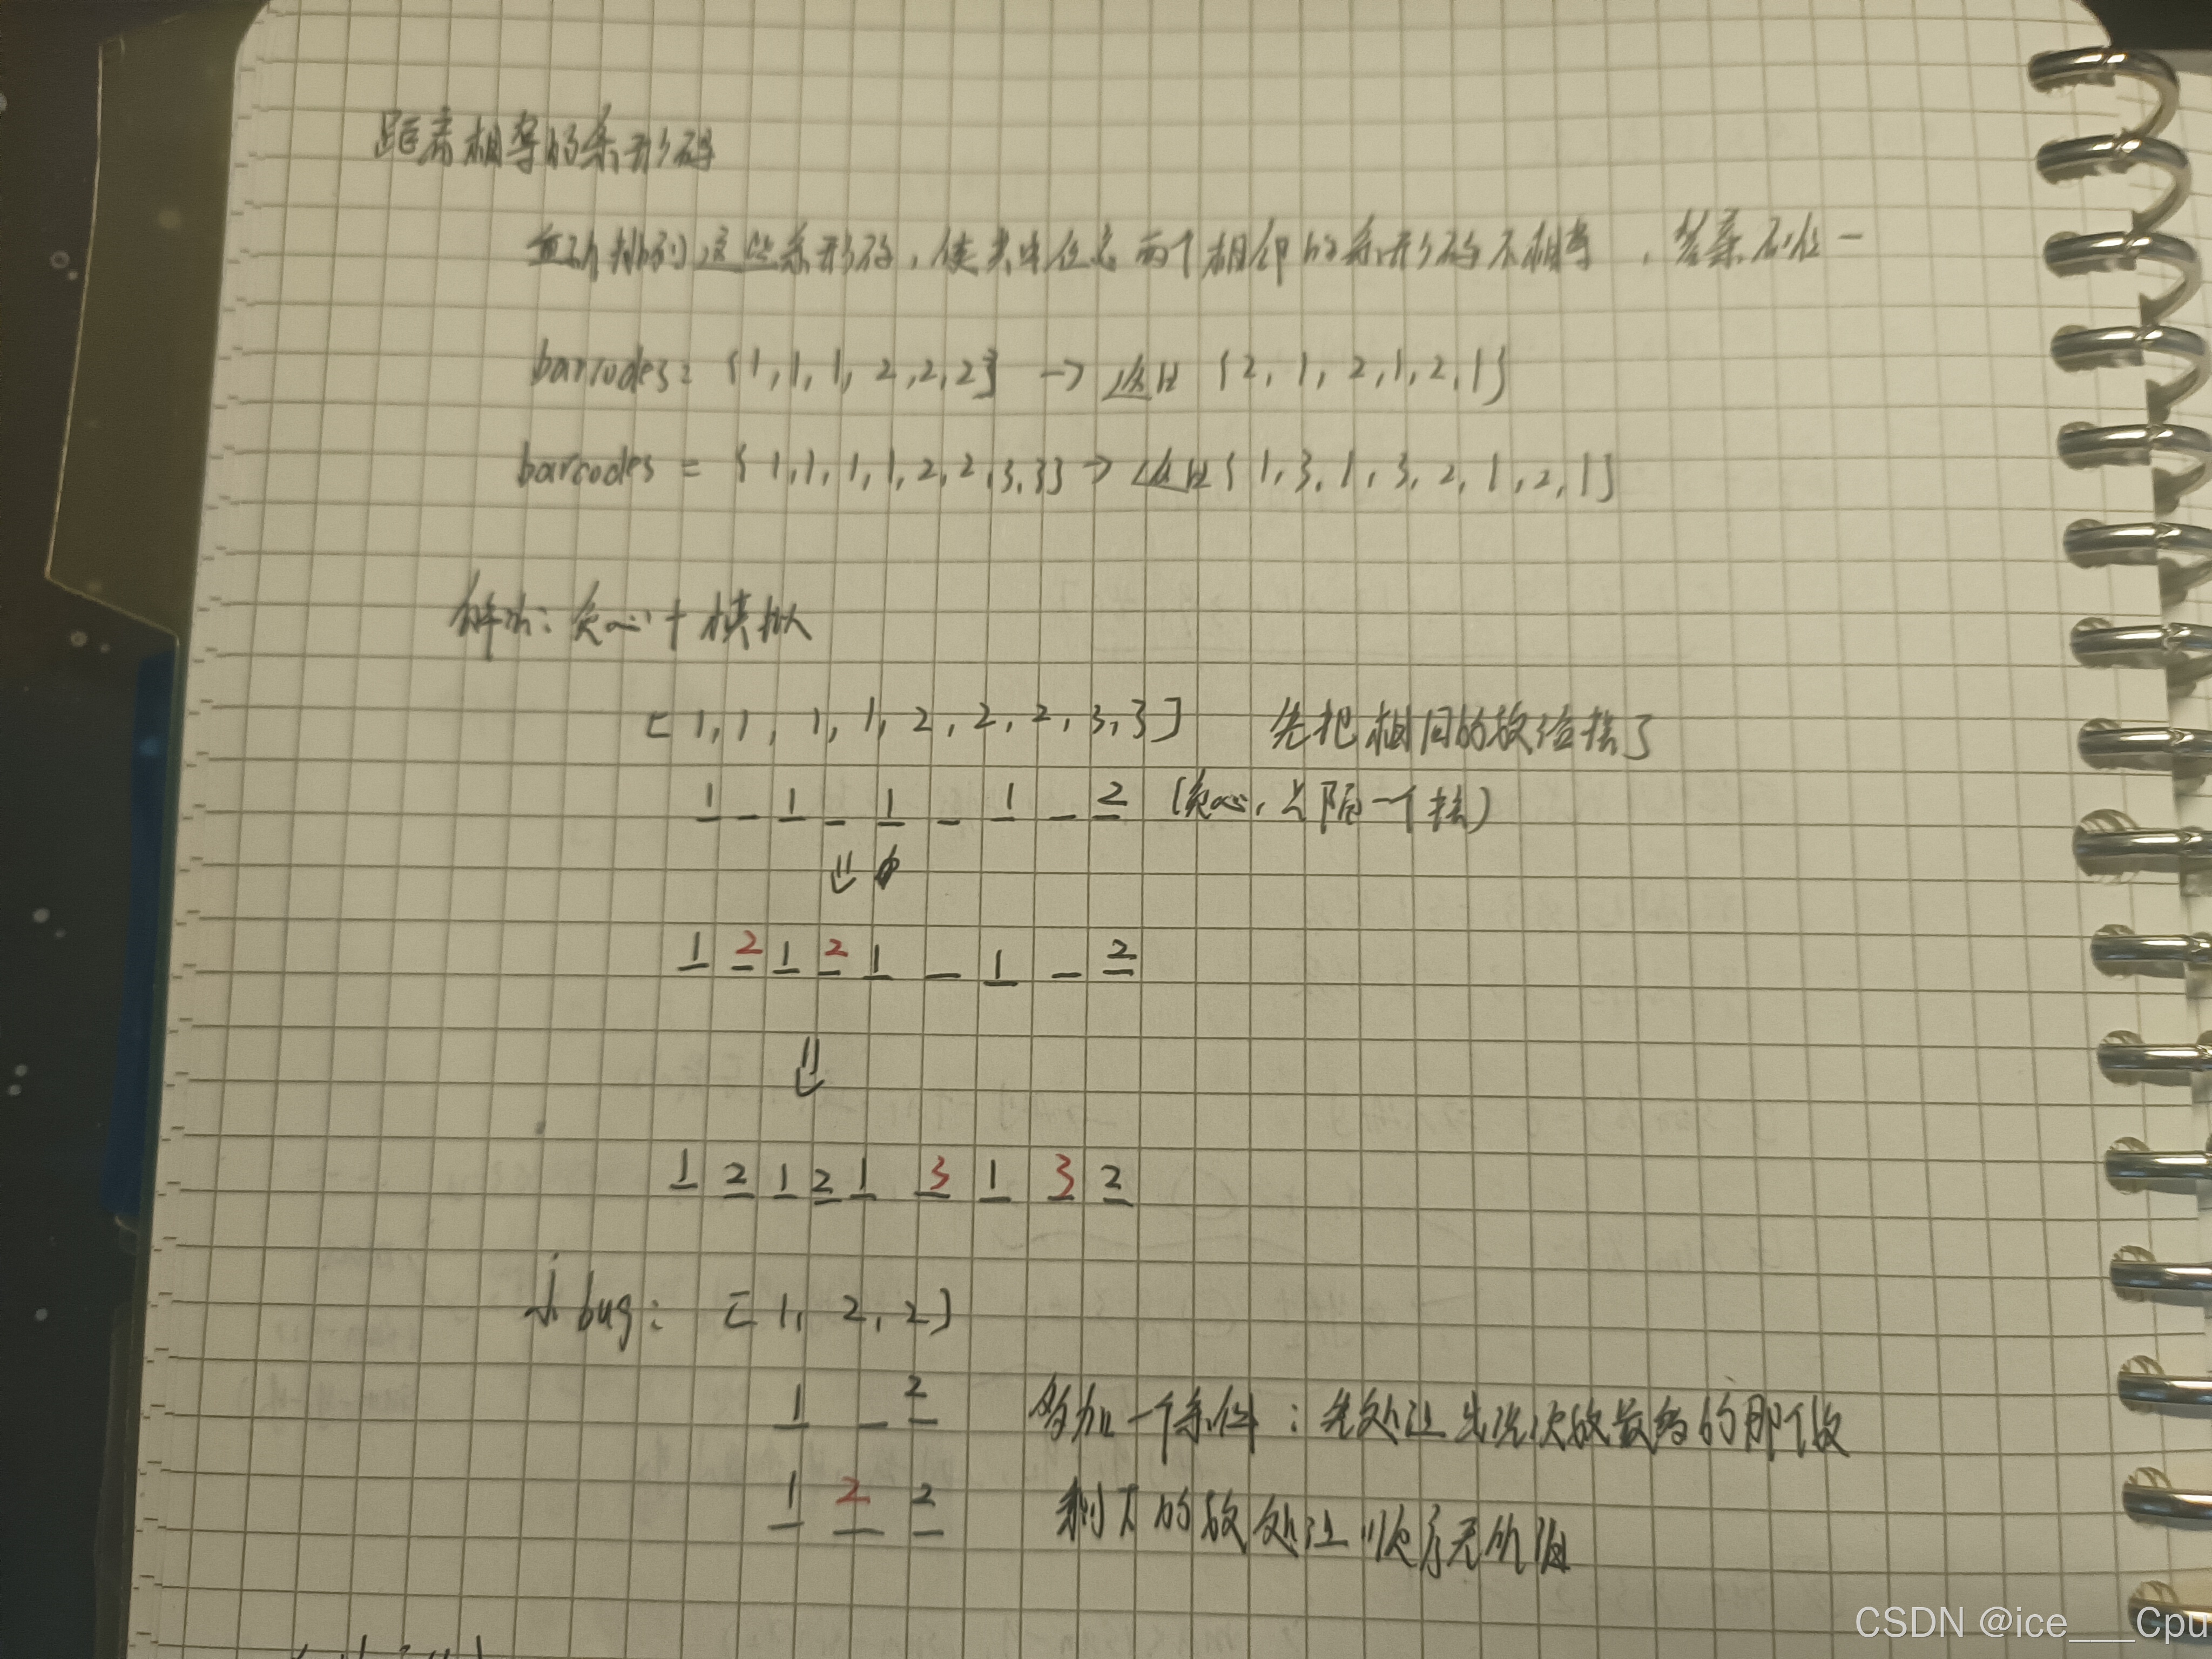 距离相等的条形码
重新排列这些条形码，使其中任意两个相邻的条形码不相等，答案不唯一
barcodes = {1,1,1,2,2,2} → 返回 {2,1,2,1,2,1}
barcodes = {1,1,1,1,2,2,3,3} → 返回 {1,3,1,3,2,1,2,1}
解法：贪心+模拟
[1,1,1,1,2,2,2,3,3] 先把相同的数给摆了
1 _ 1 _ 1 _ 1 _ 2 (贪心，隔一个摆)
⇓
1 2 1 2 1 _ 1 _ 2
⇓
1 2 1 2 1 3 1 3 2
小bug： [1, 2, 2]
1 _ 2 多加一个条件：先处理出现次数最多的那个数
1 2 2 剩下的数处理顺序无所谓
CSDN @ice___Cpu